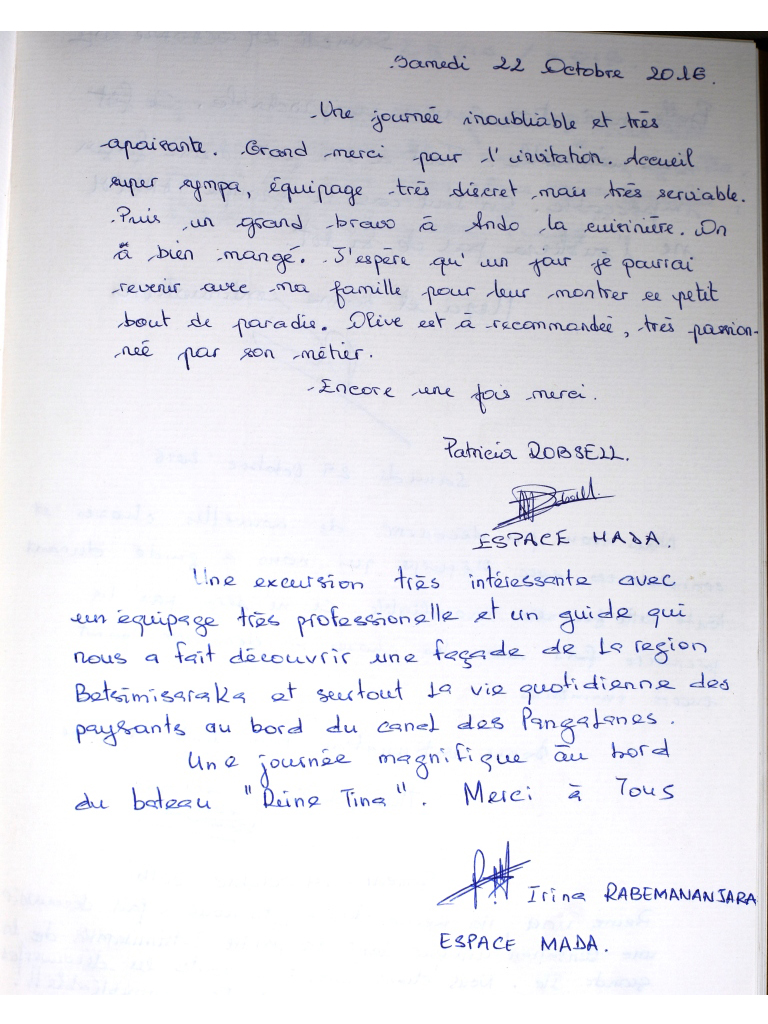 Samedi 22 Octobre 2016.
Une journée inoubliable et très
apaisante. Grand merci pour l'invitation. Accueil
super sympa, équipage très discret mais très serviable.
Puis un grand bravo à Ando la cuisinière. On
à bien mangé. J'espère qu'un jour je pourrai
revenir avec ma famille pour leur montrer ce petit
bout de paradis. Olive est à recommandée, très passion-
née par son métier.
Encore une fois merci.
Patricia ROBSELL.
ESPACE MADA.
Une excursion très intéressante avec
un équipage très professionelle et un guide qui
nous a fait découvrir une façade de la region
Betsimisaraka et surtout la vie quotidienne des
paysants au bord du canal des Pangalanes.
Une journée magnifique au bord
du bateau "Reine Tina". Merci à Tous
Irina RABEMANANJARA
ESPACE MADA.